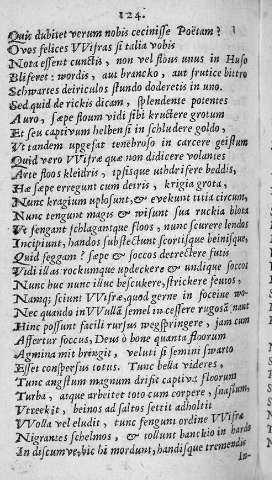 124.
Quis dubitet verum nobis cecinisse Poëtam?
O vos felices VVifras si talia vobis
Nota essent cunctis, non vel flous unus in Huso
Bliferet: wordis, aut brancko, aut frutice bittro
Schwartes deiriculos stundo doderetis in uno.
Sed quid de rickis dicam, splendente potentes
Auro, sæpe floum vidi sibi kructere grotum
Et seu captivum helbens in schludere goldo,
Ut tandem upgefat tenebroso in carcere geistum
Quid vero VVifræ quæ non didicere volantes
Arte floos kleidris, ipsisque uthdrifere beddis,
Hæ sæpe erregunt cum deiris, krigia grota,
Nunc kragium uplosunt, & evekunt titia circum,
Nunc tengunt magis & wisunt sua ruckia blota
Ut fengant schlagantque floos, nunc scurere lendos
Incipiunt, handos substectunt scortisque beinisque,
Quid seggam? sæpe & soccos detrectere futis
Vidi illas rockumque updeckere & undique soccot
Nunc huc nunc illuc besckuere, strickere feutos,
Namq; sciunt VVifræ, quod gerne in foceine wo-
Nec quando in VVullâ semel in cessere rugosâ naut
Hinc possunt facili rursus wegspringere, jam cum
Affertur soccus, Deus ò bone quanta floorum
Agmina mit bringit, veluti si semini swarto
Esset conspersus totus. Tunc bella videres,
Tunc angstum magnum drifit captiva floorum
Turba, atque arbeitet toto cum corpore, snastum,
Utreckit, beinos ad saltos settit adholtii
VVolla vel eludit, tunc fengunt ordine VVifræ
Nigrantes schelmos, & tollunt banckio in hardo
In discum ve, hic hi mordunt, handisque tremendis
In-